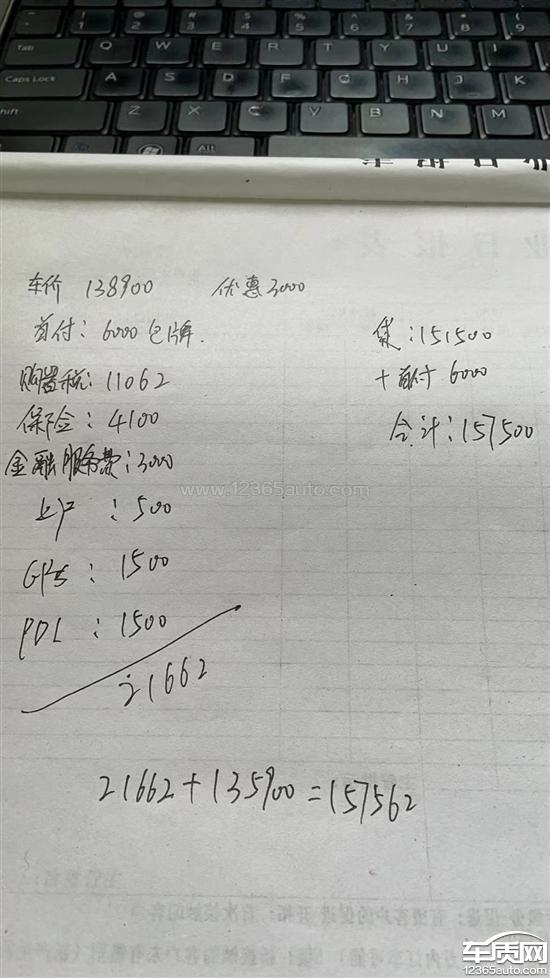 Tab
Q W E R T Y U I
Caps Lock A S D F G H J K
Shift Z X C V B N M
Alt
业日报表
车价 138900 优惠3000
首付：6000包牌.
贷：151500
购置税：11062
+首付 6000
保险：4100
合计：157500
金融服务费：3000
www.12365auto.com
上户：500
GPS：1500
PDI：1500
21662
21662+135900=157562
车质网
12365auto.com